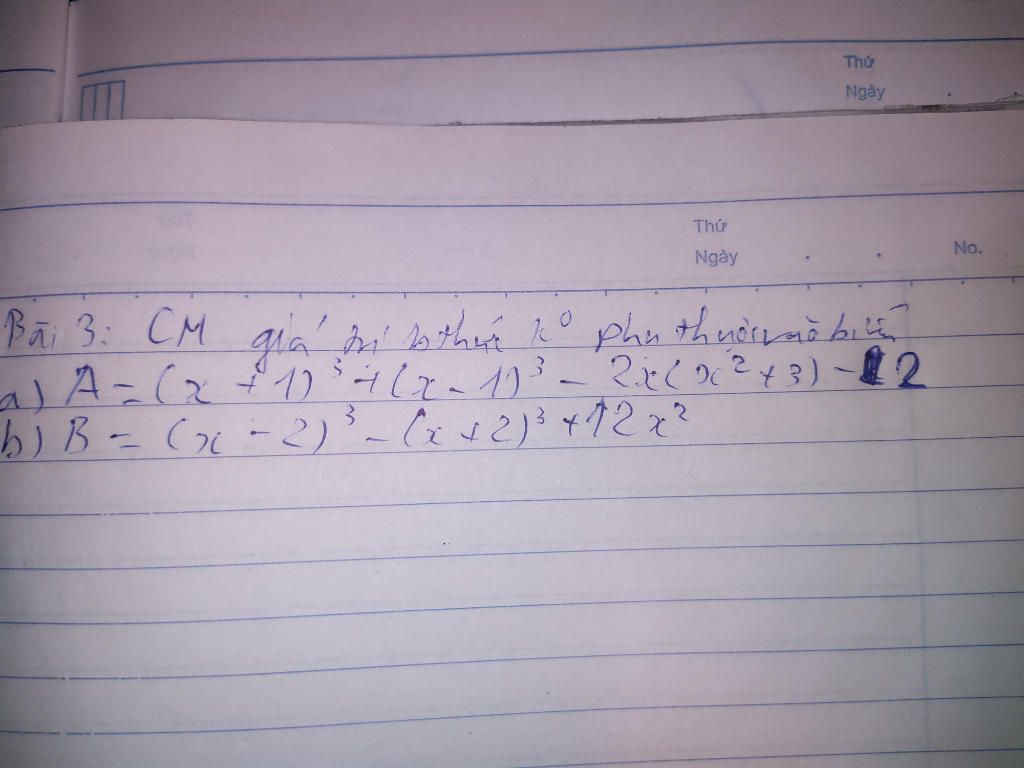 Thứ
Ngày
Thứ
Ngày
No.
Bài 3: CM giá trị b thức k⁰ phụ thuộc vào biến
a) A = (x + 1)³ + (x - 1)³ - 2x(x² + 3) - 12
b) B = (x - 2)³ - (x + 2)³ + 12x²